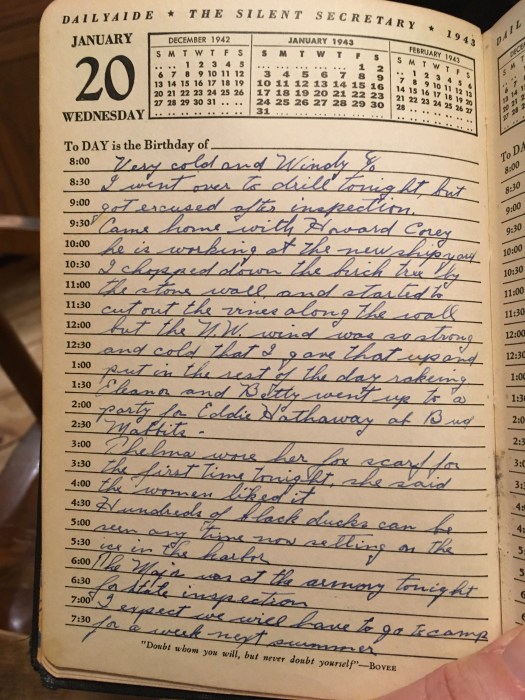 DAILYAIDE ★ THE SILENT SECRETARY ★ 1943
JANUARY
20
WEDNESDAY
DECEMBER 1942
S M T W T F S
.. .. 1 2 3 4 5
6 7 8 9 10 11 12
13 14 15 16 17 18 19
20 21 22 23 24 25 26
27 28 29 30 31 .. ..
JANUARY 1943
S M T W T F S
.. .. .. .. .. 1 2
3 4 5 6 7 8 9
10 11 12 13 14 15 16
17 18 19 20 21 22 23
24 25 26 27 28 29 30
31 .. .. .. .. .. ..
FEBRUARY 1943
S M T W T F S
.. 1 2 3 4 5 6
7 8 9 10 11 12 13
14 15 16 17 18 19 20
21 22 23 24 25 26 27
28 .. .. .. .. .. ..
To DAY is the Birthday of
8:00 Very cold and Windy
8:30 I went over to drill tonight, but
9:00 got excused after inspection.
9:30 Came home with Howard Corey
10:00 he is working at the new shipyard
10:30 I chopped down the birch tree by
11:00 the stone wall, and started to
11:30 cut out the vines along the wall
12:00 but the N.W. wind was so strong
12:30 and cold, that I gave that up and
1:00 put in the rest of the day rakeing
1:30 Eleanor and Betty went up to a
2:00 party for Eddie Hathaway at Bud
2:30 Maltbits.
3:00 Thelma wore her fox scarf for
3:30 the first time tonight, she said
4:00 the women liked it
4:30 Hundreds of black ducks can be
5:00 seen any time now setting on the
5:30 ice in the harbor
6:00 The Major was at the armory tonight
6:30 for State inspection
7:00 I expect we will have to go to camp
7:30 for a week next summer
"Doubt whom you will, but never doubt yourself"—BOVEE